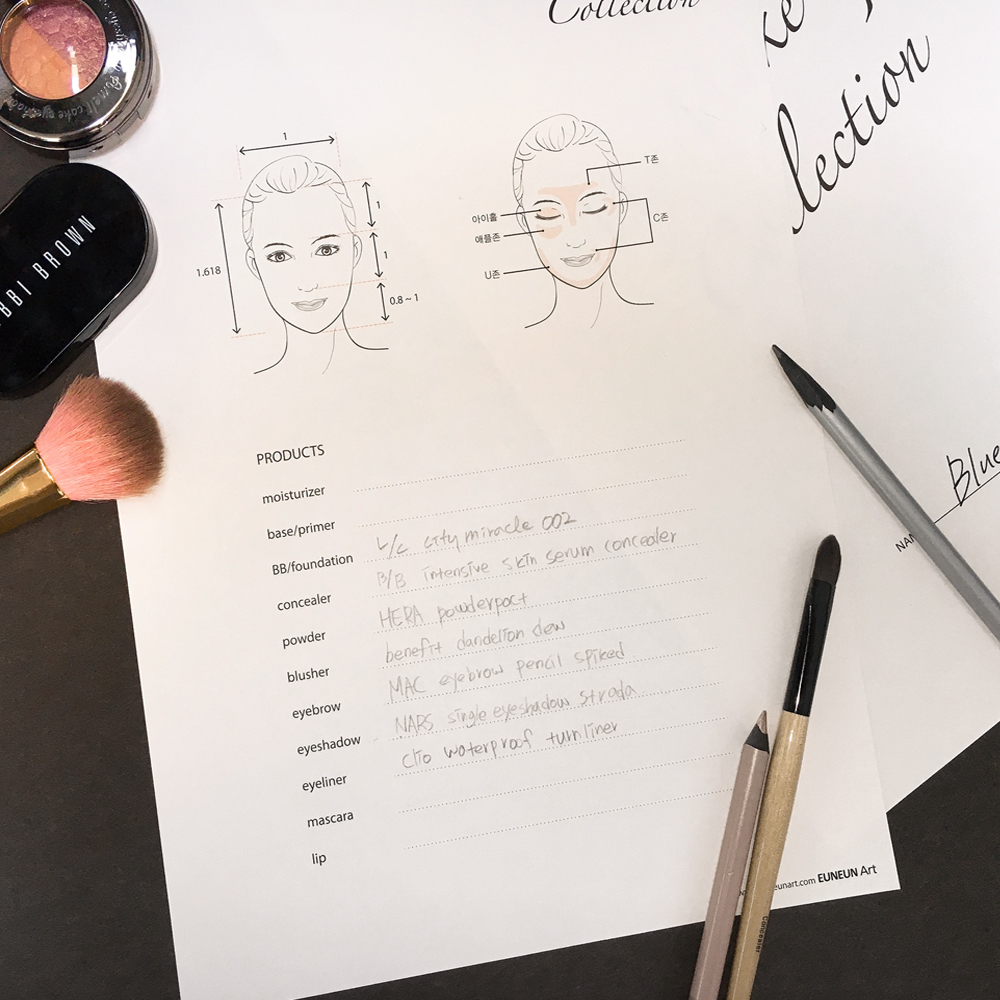 Collection
lection
1
1
1
1.618
0.8 ~ 1
T존
아이홀
애플존
C존
U존
BOBBI BROWN
PRODUCTS
moisturizer
base/primer
BB/foundation L/C city miracle 002
concealer B/B intensive skin serum concealer
powder HERA powderpact
blusher benefit dandelion dew
eyebrow MAC eyebrow pencil spiked
eyeshadow NARS single eyeshadow strada
eyeliner Clio waterproof turnliner
mascara
lip
Blue
Concealer
EUNEUN Art